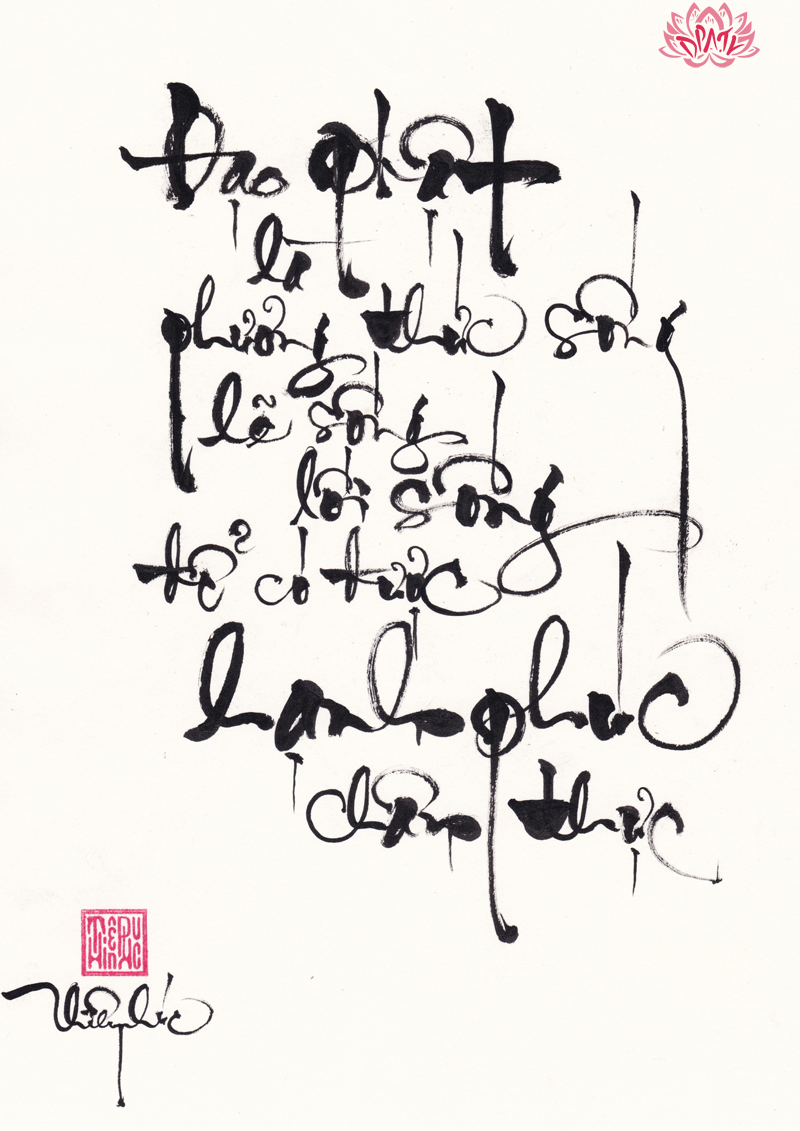 ĐPATK
Đạo phật
là
phương thức sống
lẽ sống
lối sống
để có được
hạnh phúc
chân thực
THIÊN PHÚC
Thiên phúc